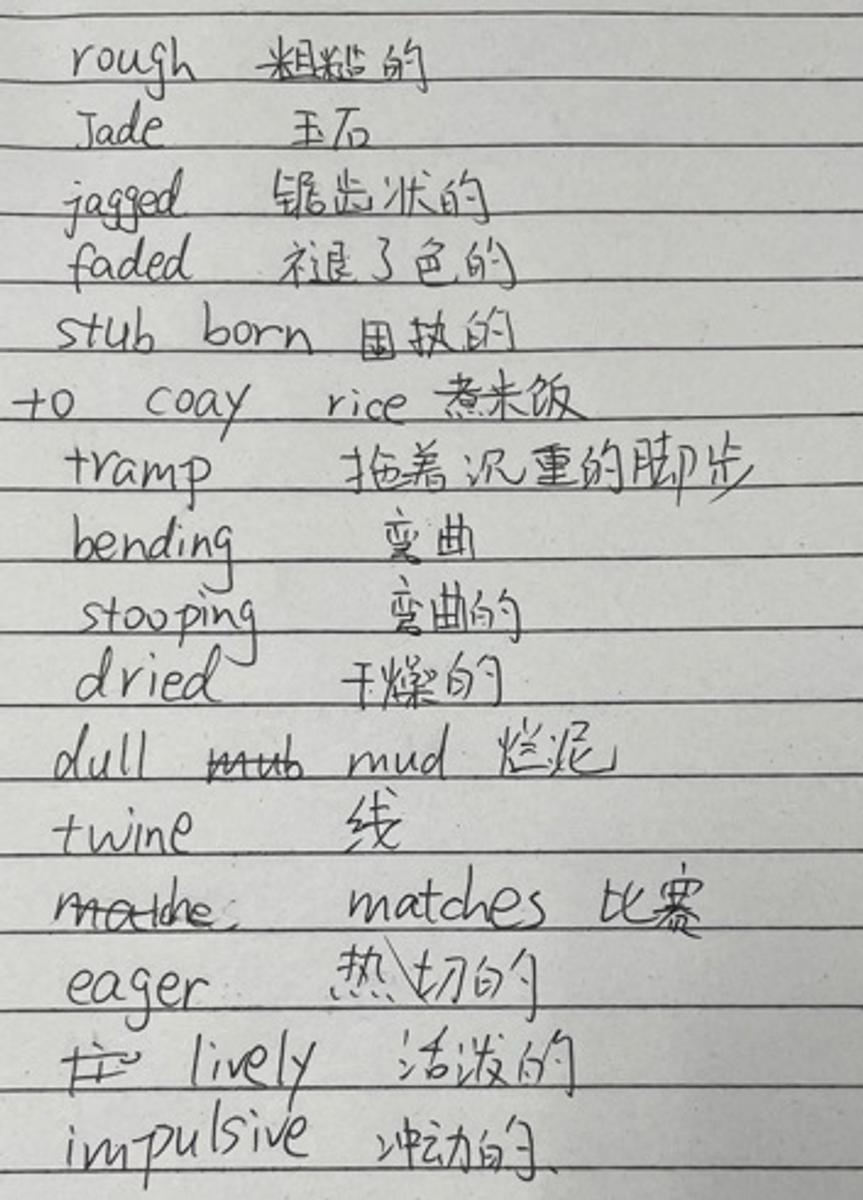 rough 粗糙的
Jade 玉石
jagged 锯齿状的
faded 褪了色的
stub born 固执的
to coay rice 煮米饭
tramp 拖着沉重的脚步
bending 弯曲
stooping 弯曲的
dried 干燥的
dull mub mud 烂泥
twine 线
matches 比赛
eager 热切的
lively 活泼的
impulsive 冲动的、